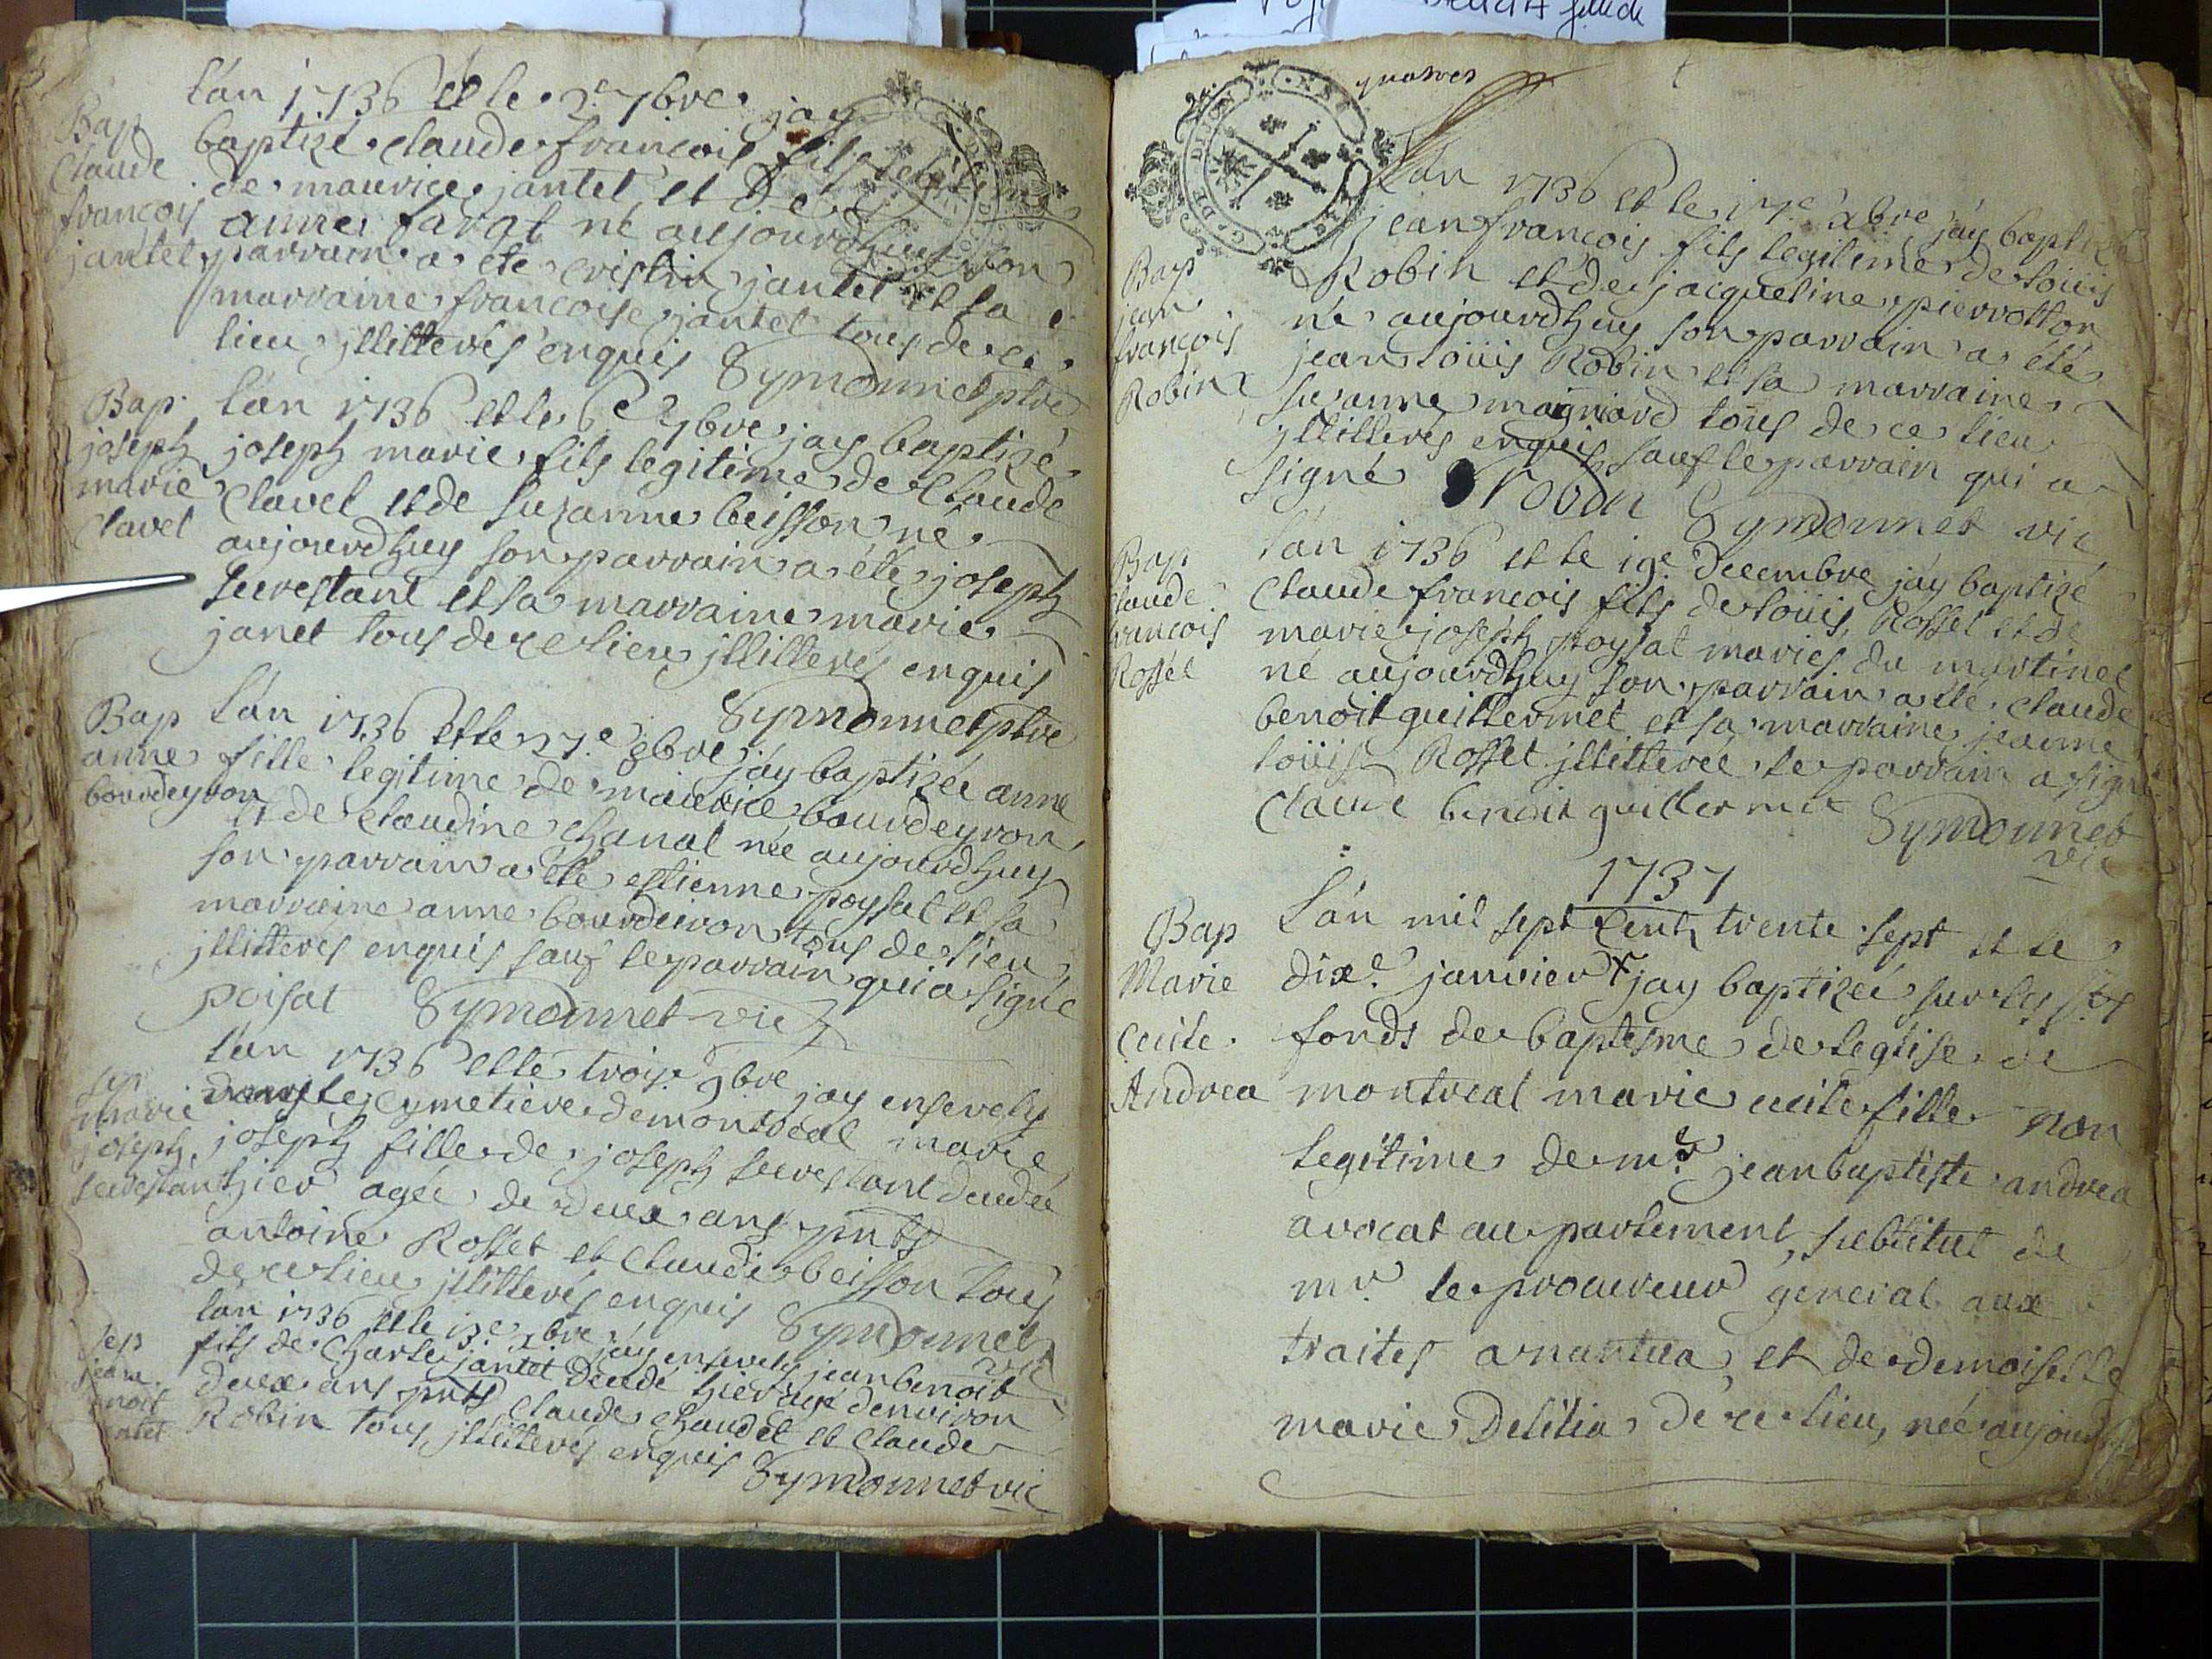 Bap
Claude
francois
jantet
lán 1736 et le 2e 7bre jay
baptizé claude francois fils legitime
de maurice jantet et de
anne favat né aujourdhuy son
parrain a ete cristin jantet et sa
marraine francoise jantet tous de ce
lieu jllitterés enquis Symonnet ptre
Bap
joseph
marie
Clavel
lán 1736 et le 6e 7bre jay baptizé
joseph marie fils legitime de Claude
Clavel et de suzanne beisson né
aujourdhuy son parrain a été joseph
secrestant et sa marraine marie
janet tous de ce lieu jllitterés enquis
Symonnet ptre
Bap
anne
bourdeyron
Lán 1736 et le 27e 8bre jáy baptizée anne
fille legitime de maurice bourdeyron
et de claudine chanal née aujourdhuy
son parrain a été estienne poysat et sa
marraine anne bourdeiron tous de lieu
jllitterés enquis sauf le parrain qui a signé
poisat Symonnet vic
sep
marie
joseph
secrestant
lán 1736 et le troise 9bre jay ensevely
dans le cymetiere de montréal marie
joseph fille de joseph secrestant decedée
hier agée de deux ans pnts
antoine Rosset et claude beisson tous
de ce lieu jllitterés enquis Symonnet
vic
sep
jean
enoit
antet
lán 1736 et le 13e xbre jáy ensevely jean benoit
fils de Charle jantet decedé hier agé denviron
deux ans pnts claude chaudet et claude
Robin tous jllitterés enquis Symonnet vic
quatres
Bap
jean
francois
Robin
Lán 1736 et le 17e xbre jáy baptizé
jean françois fils legitime de loüis
Robin et de jacqueline pierrotton
né aujourdhuy son parrain a été
jean loüis Robin et sa marraine
suzanne magniard tous de ce lieu
jllitterés enquis sauf le parrain qui a
signé Robin Symonnet vic
Bap
claude
francois
Rosset
lán 1736 et le 19e decembre jáy baptizé
Claude francois fils de loüis Rosset et de
marie joseph poysat mariés du martinet
né aujourdhuy son parrain a été claude
benoit guillermet et sa marraine jeanne
loüise Rosset jllitterée le parrain a signé
Claude benoit guillermet Symonnet
vic
1737
Bap
Marie
Cecile
Andrea
Lán mil sept cent trente sept et le
dixe janvier jay baptizée sur les sts
fonds de baptesme de leglise de
montreal marie cecile fille non
legitime de mr jean baptiste andrea
avocat au parlement, substitut de
mr le procureur general aux
traites a nantua, et de demoiselle
marie Delilia de ce lieu, née aujourdhuy